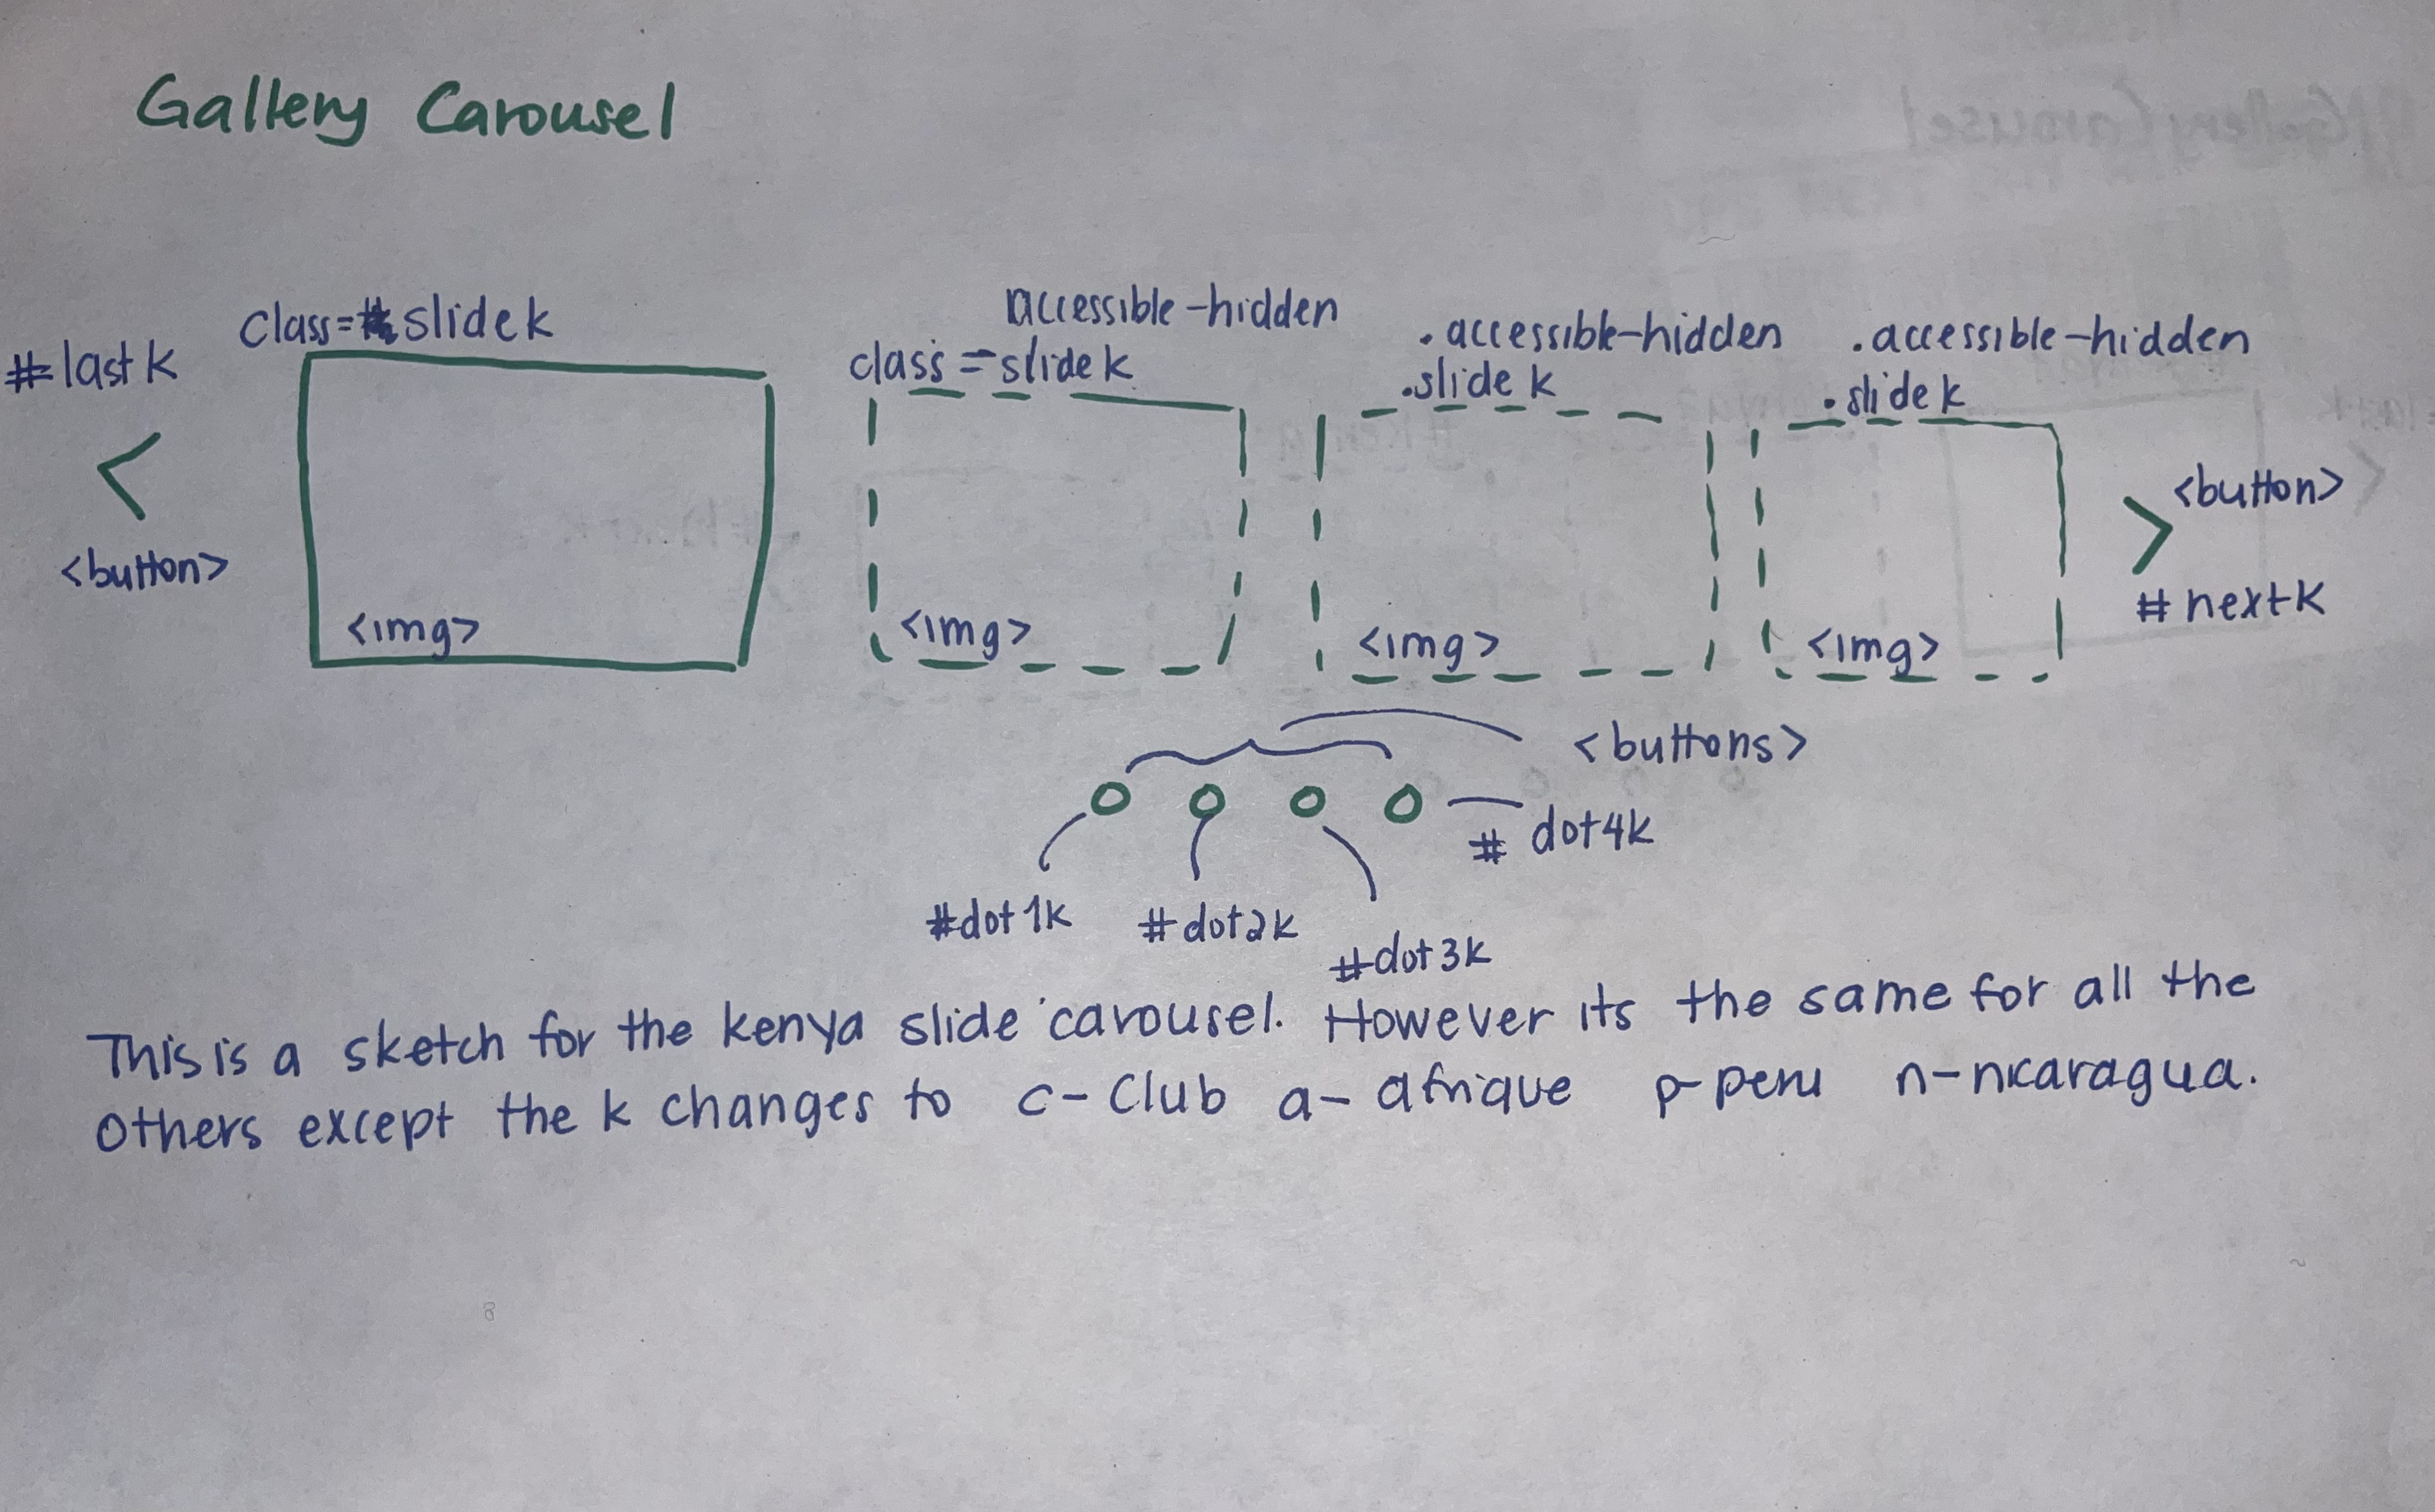 Gallery Carousel
#lastk
<button>
class= slidek
<img>
accessible-hidden
class = slidek
<img>
.accessible-hidden
.slidek
<img>
.accessible-hidden
.slidek
<img>
<button>
#nextk
<buttons>
#dot1k
#dot2k
#dot3k
# dot4k
This is a sketch for the kenya slide carousel. However its the same for all the
others except the k changes to c- Club a- afrique p-peru n-nicaragua.